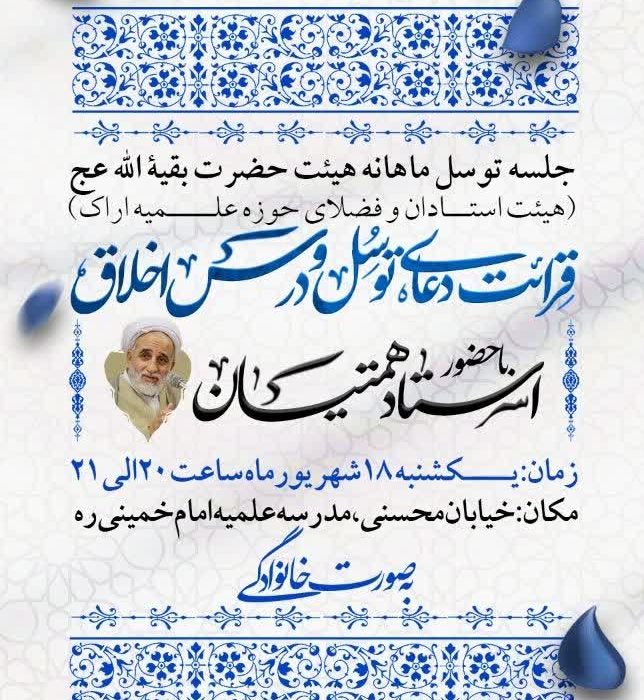 جلسه توسل ماهانه هیئت حضرت بقیة الله عج
(هیئت استادان و فضلای حوزه علمیه اراک)
قرائت دعای توسل و درس اخلاق
با حضور
استاد همتیان
زمان: یکشنبه ۱۸ شهریور ماه ساعت ۲۰ الی ۲۱
مکان: خیابان محسنی، مدرسه علمیه امام خمینی ره
به صورت خانوادگی